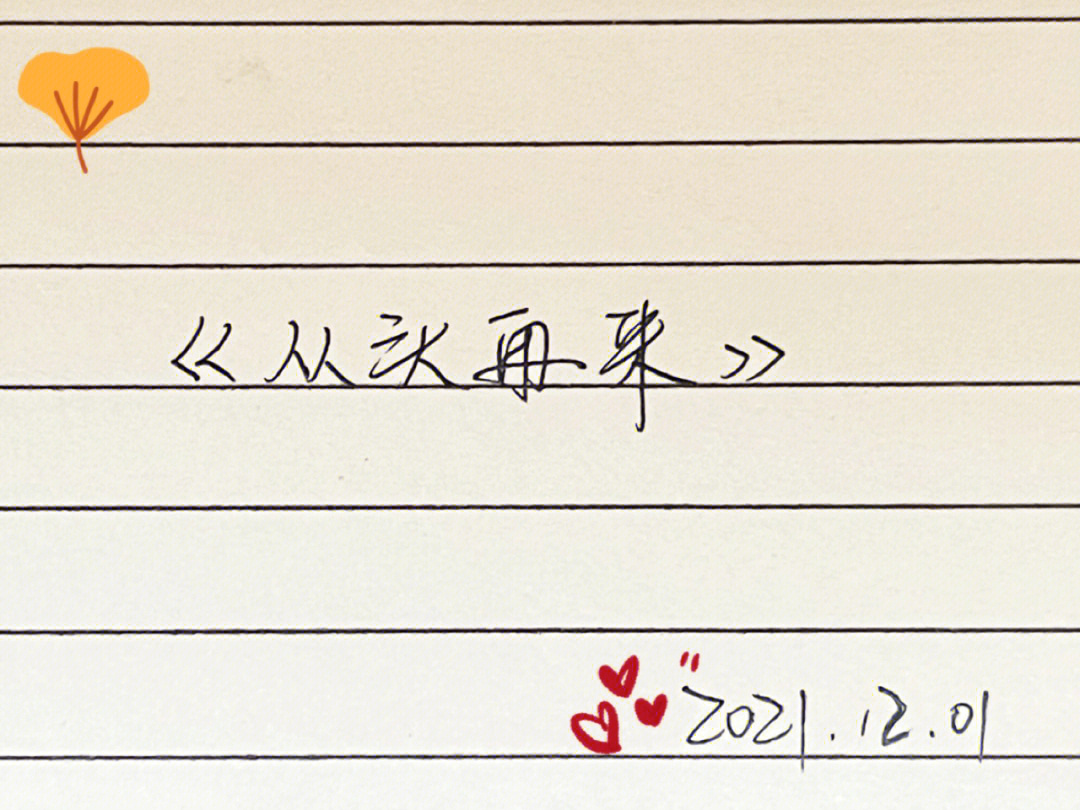 《从头再来》
2021.12.01